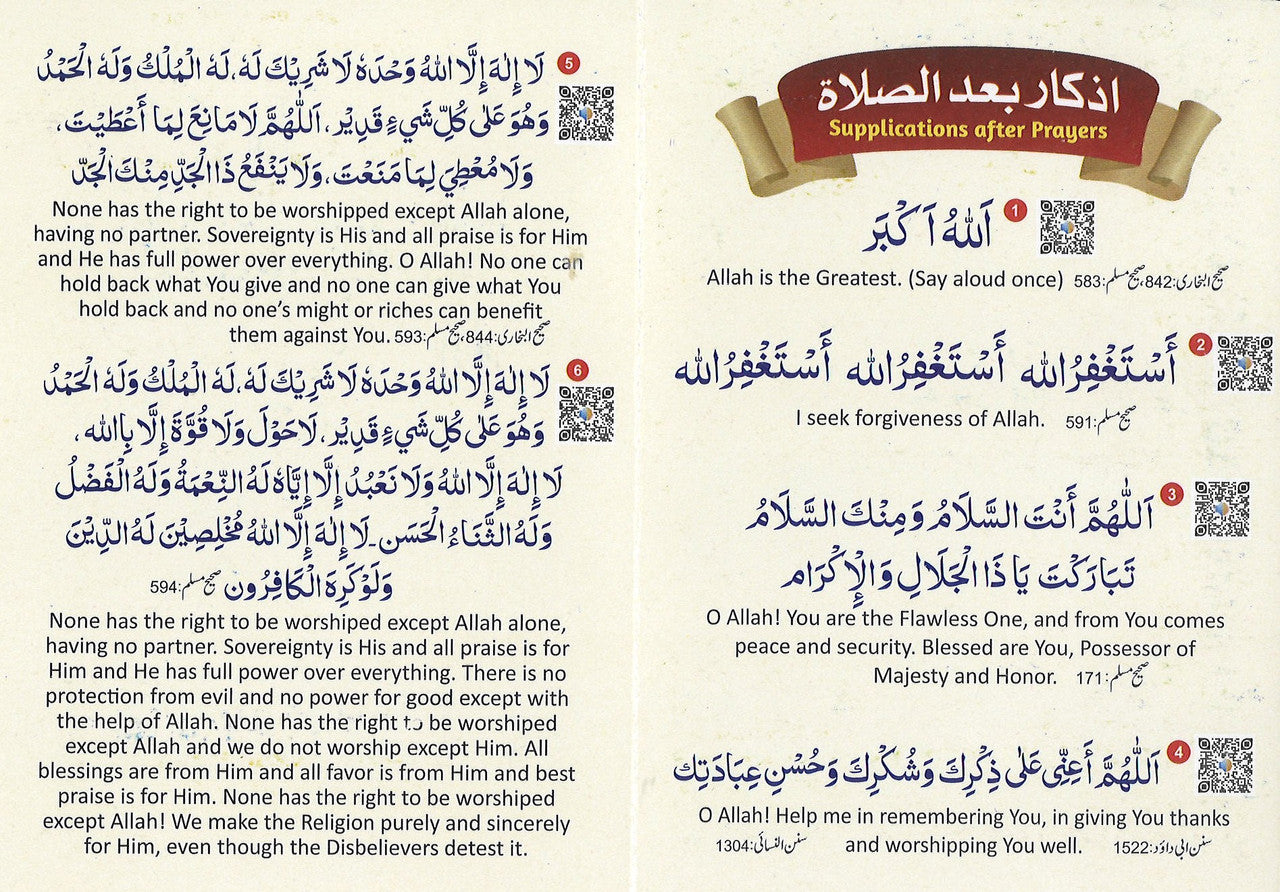 اذكار بعد الصلاة
Supplications after Prayers
1
اَللهُ اَكْبَر
Allah is the Greatest. (Say aloud once) صحیح البخاری:842، صحیح مسلم:583
2
أَسْتَغْفِرُالله أَسْتَغْفِرُالله أَسْتَغْفِرُالله
I seek forgiveness of Allah. صحیح مسلم:591
3
اَللّٰهُمَّ أَنْتَ السَّلَامُ وَمِنْكَ السَّلَامُ
تَبَارَكْتَ يَا ذَا الْجَلَالِ وَالْإِكْرَام
O Allah! You are the Flawless One, and from You comes
peace and security. Blessed are You, Possessor of
Majesty and Honor. صحیح مسلم:171
4
اَللّٰهُمَّ أَعِنِّى عَلٰى ذِكْرِكَ وَشُكْرِكَ وَحُسْنِ عِبَادَتِك
O Allah! Help me in remembering You, in giving You thanks
and worshipping You well. سنن ابی داؤد:1522 سنن النسائی:1304
5
لَا إِلٰهَ إِلَّا اللهُ وَحْدَهٗ لَا شَرِيْكَ لَهٗ، لَهُ الْمُلْكُ وَلَهُ الْحَمْدُ
وَهُوَ عَلٰى كُلِّ شَيْءٍ قَدِيْر، اَللّٰهُمَّ لَا مَانِعَ لِمَا أَعْطَيْتَ،
وَلَا مُعْطِيَ لِمَا مَنَعْتَ، وَلَا يَنْفَعُ ذَا الْجَدِّ مِنْكَ الْجَدّ
None has the right to be worshipped except Allah alone,
having no partner. Sovereignty is His and all praise is for Him
and He has full power over everything. O Allah! No one can
hold back what You give and no one can give what You
hold back and no one's might or riches can benefit
them against You. صحیح البخاری:844، صحیح مسلم:593
6
لَا إِلٰهَ إِلَّا اللهُ وَحْدَهٗ لَا شَرِيْكَ لَهٗ، لَهُ الْمُلْكُ وَلَهُ الْحَمْدُ
وَهُوَ عَلٰى كُلِّ شَيْءٍ قَدِيْر، لَا حَوْلَ وَلَا قُوَّةَ إِلَّا بِالله،
لَا إِلٰهَ إِلَّا اللهُ وَلَا نَعْبُدُ إِلَّا إِيَّاهُ لَهُ النِّعْمَةُ وَلَهُ الْفَضْلُ
وَلَهُ الثَّنَاءُ الْحَسَن۔ لَا إِلٰهَ إِلَّا اللهُ مُخْلِصِيْنَ لَهُ الدِّيْنَ
وَلَوْ كَرِهَ الْكَافِرُون صحیح مسلم:594
None has the right to be worshiped except Allah alone,
having no partner. Sovereignty is His and all praise is for
Him and He has full power over everything. There is no
protection from evil and no power for good except with
the help of Allah. None has the right to be worshiped
except Allah and we do not worship except Him. All
blessings are from Him and all favor is from Him and best
praise is for Him. None has the right to be worshiped
except Allah! We make the Religion purely and sincerely
for Him, even though the Disbelievers detest it.